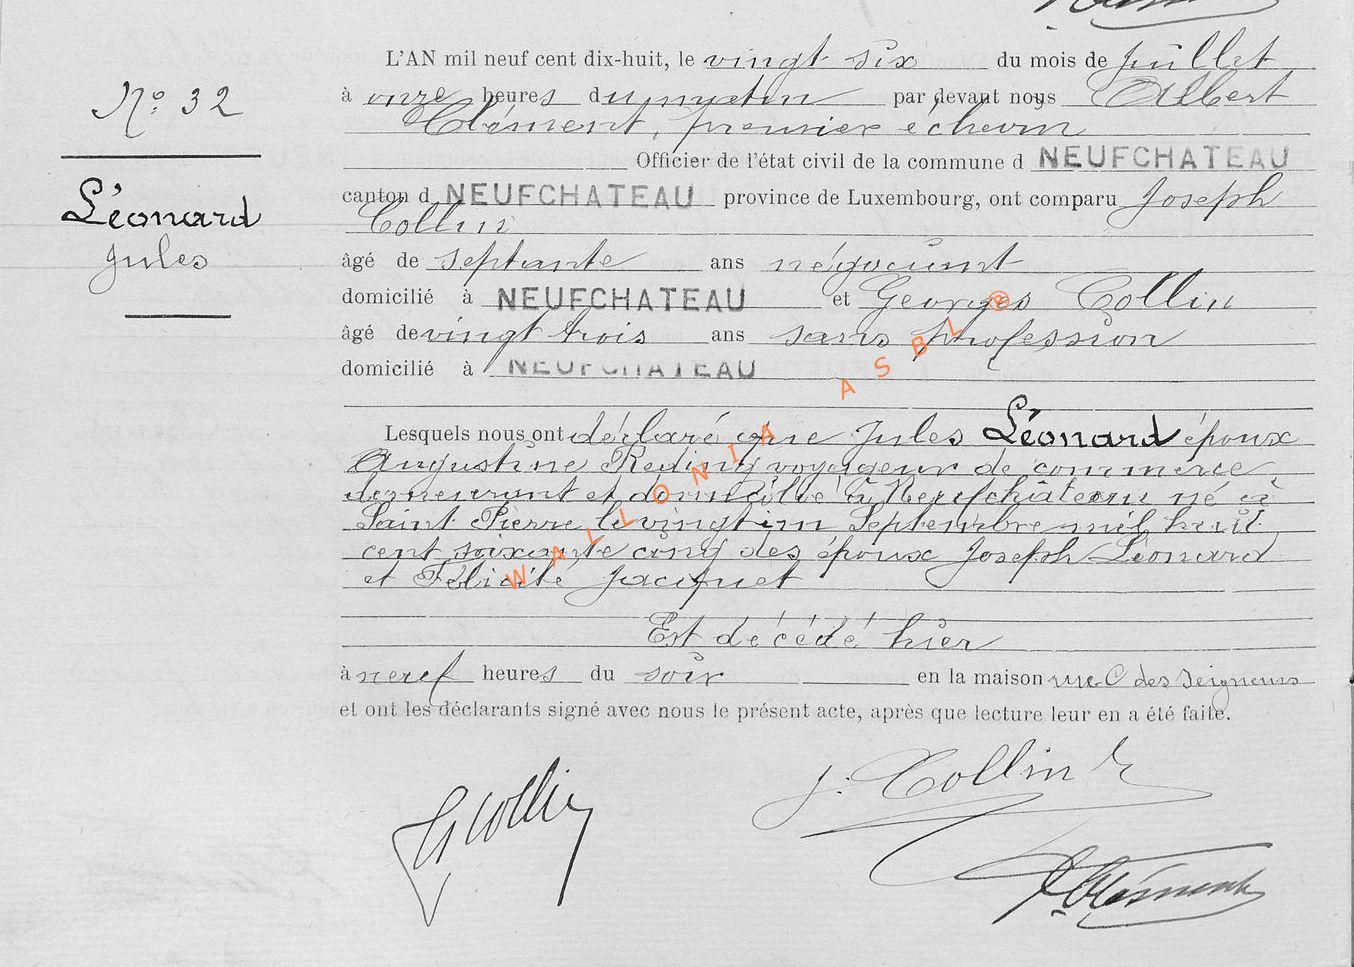 N° 32
Léonard
Jules
L'AN mil neuf cent dix-huit, le vingt six du mois de juillet
à onze heures du matin par devant nous Albert
Clément, premier échevin
Officier de l'état civil de la commune d NEUFCHATEAU
canton d NEUFCHATEAU province de Luxembourg, ont comparu Joseph
Collin
âgé de septante ans négociant
domicilié à NEUFCHATEAU et Georges Collin
âgé de vingt trois ans sans profession
domicilié à NEUFCHATEAU
Lesquels nous ont déclaré que Jules Léonard époux
Augustine Reding voyageur de commerce
demeurant et domicilié à Neufchâteau né à
Saint Pierre le vingt un Septembre mil huit
cent soixante cinq des époux Joseph Léonard
et Félicité Jacquet
Est décédé hier
à neuf heures du soir en la maison rue des Seigneurs
et ont les déclarants signé avec nous le présent acte, après que lecture leur en a été faite.
G Collin
J. Collin
Clément
WALLONIA ASBL ®